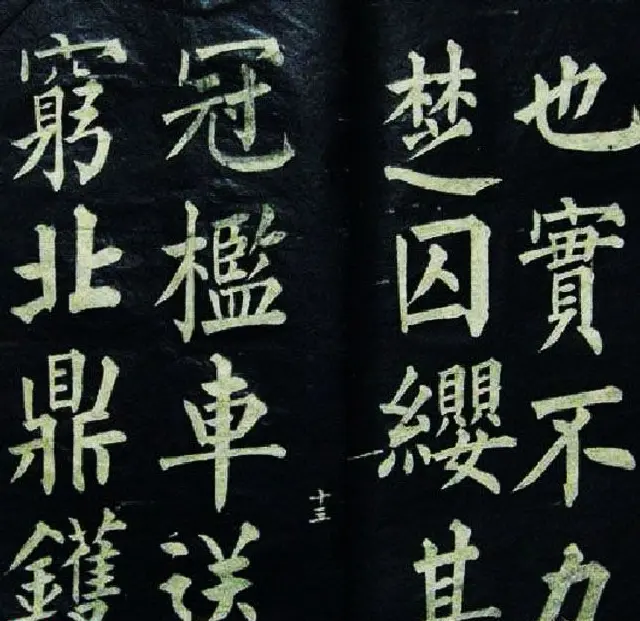 也實不力
楚囚纓其
十三
冠檻車送
窮北鼎鑊